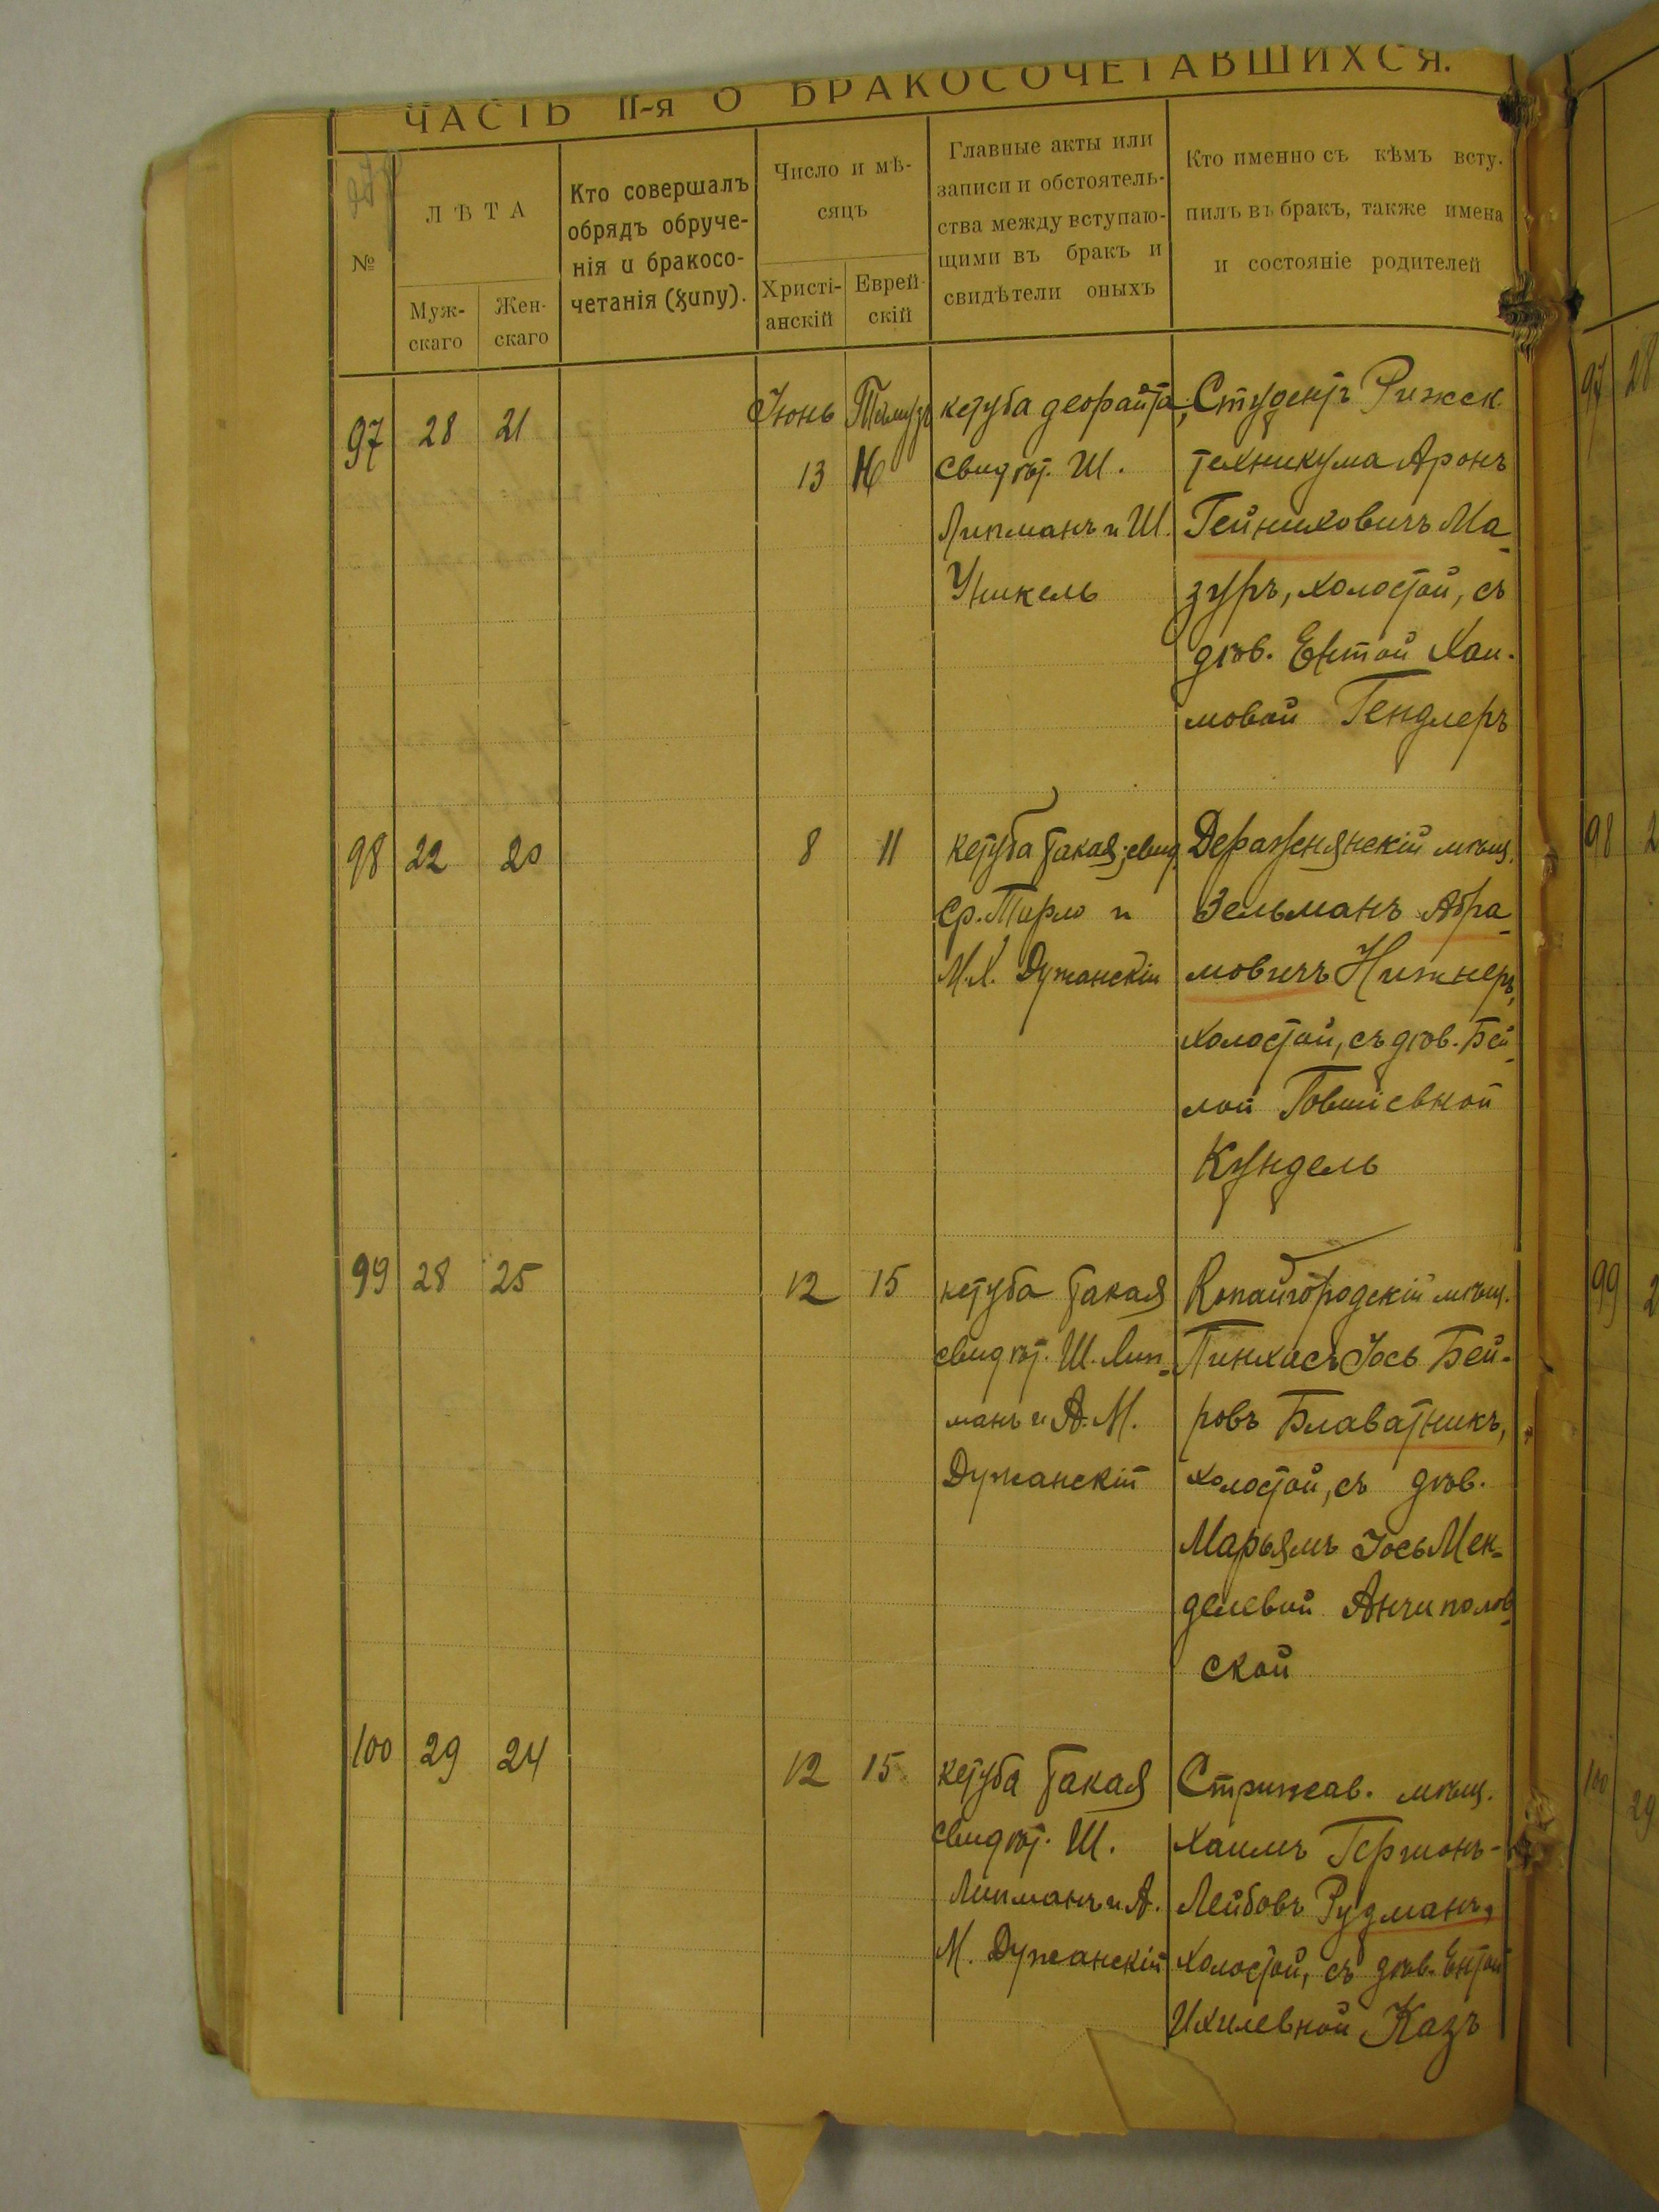 ЧАСТЬ II-я О БРАКОСОЧЕТАВШИХСЯ.
№
ЛѢТА
Муж-
скаго
Жен-
скаго
Кто совершалъ
обрядъ обруче-
нія и бракосо-
четанія (хупу).
Число и мѣ-
сяцъ
Христі-
анскій
Еврей-
скій
Главные акты или
записи и обстоятель-
ства между вступаю-
щими въ бракъ и
свидѣтели оныхъ
Кто именно съ кѣмъ всту.
пилъ въ бракъ, также имена
и состояніе родителей
97 28 21
Іюнь Тамузъ
13
кетуба деорайта;
свидѣт. Ш.
Липманъ и Ш.
Уникель
Студентъ Рижск.
техникума Аронъ
Гейниховичъ Ма-
зуръ, холостой, съ
дѣв. Ентой Хаи-
мовой Гендлеръ
98 22 20
8 11
кетуба такая; свид.
Ср. Тирло и
М.Х. Дужанскій
Деражнянскій мѣщ.
Зельманъ Абра-
мовичъ Нижнеръ,
холостой, съ дѣв. Бей-
лой Говшіевной
Кундель
99 28 25
12 15
кетуба такая
свидѣт. Ш. Лип-
манъ и А. М.
Дужанскій
Копайгородскій мѣщ.
Пинхасъ Іось Бей-
ровъ Блаватникъ,
холостой, съ дѣв.
Марьямъ Іось Мен-
делевой Анчиполов-
ской
100 29 24
12 15
кетуба такая
свидѣт. Ш.
Липманъ и А.
М. Дужанскій
Стрижав. мѣщ.
Хаимъ Гершонъ-
Лейбовъ Рудманъ,
холостой, съ дѣв. Ентой
Ихилевной Казъ
97 28
98 2
99 2
100 29